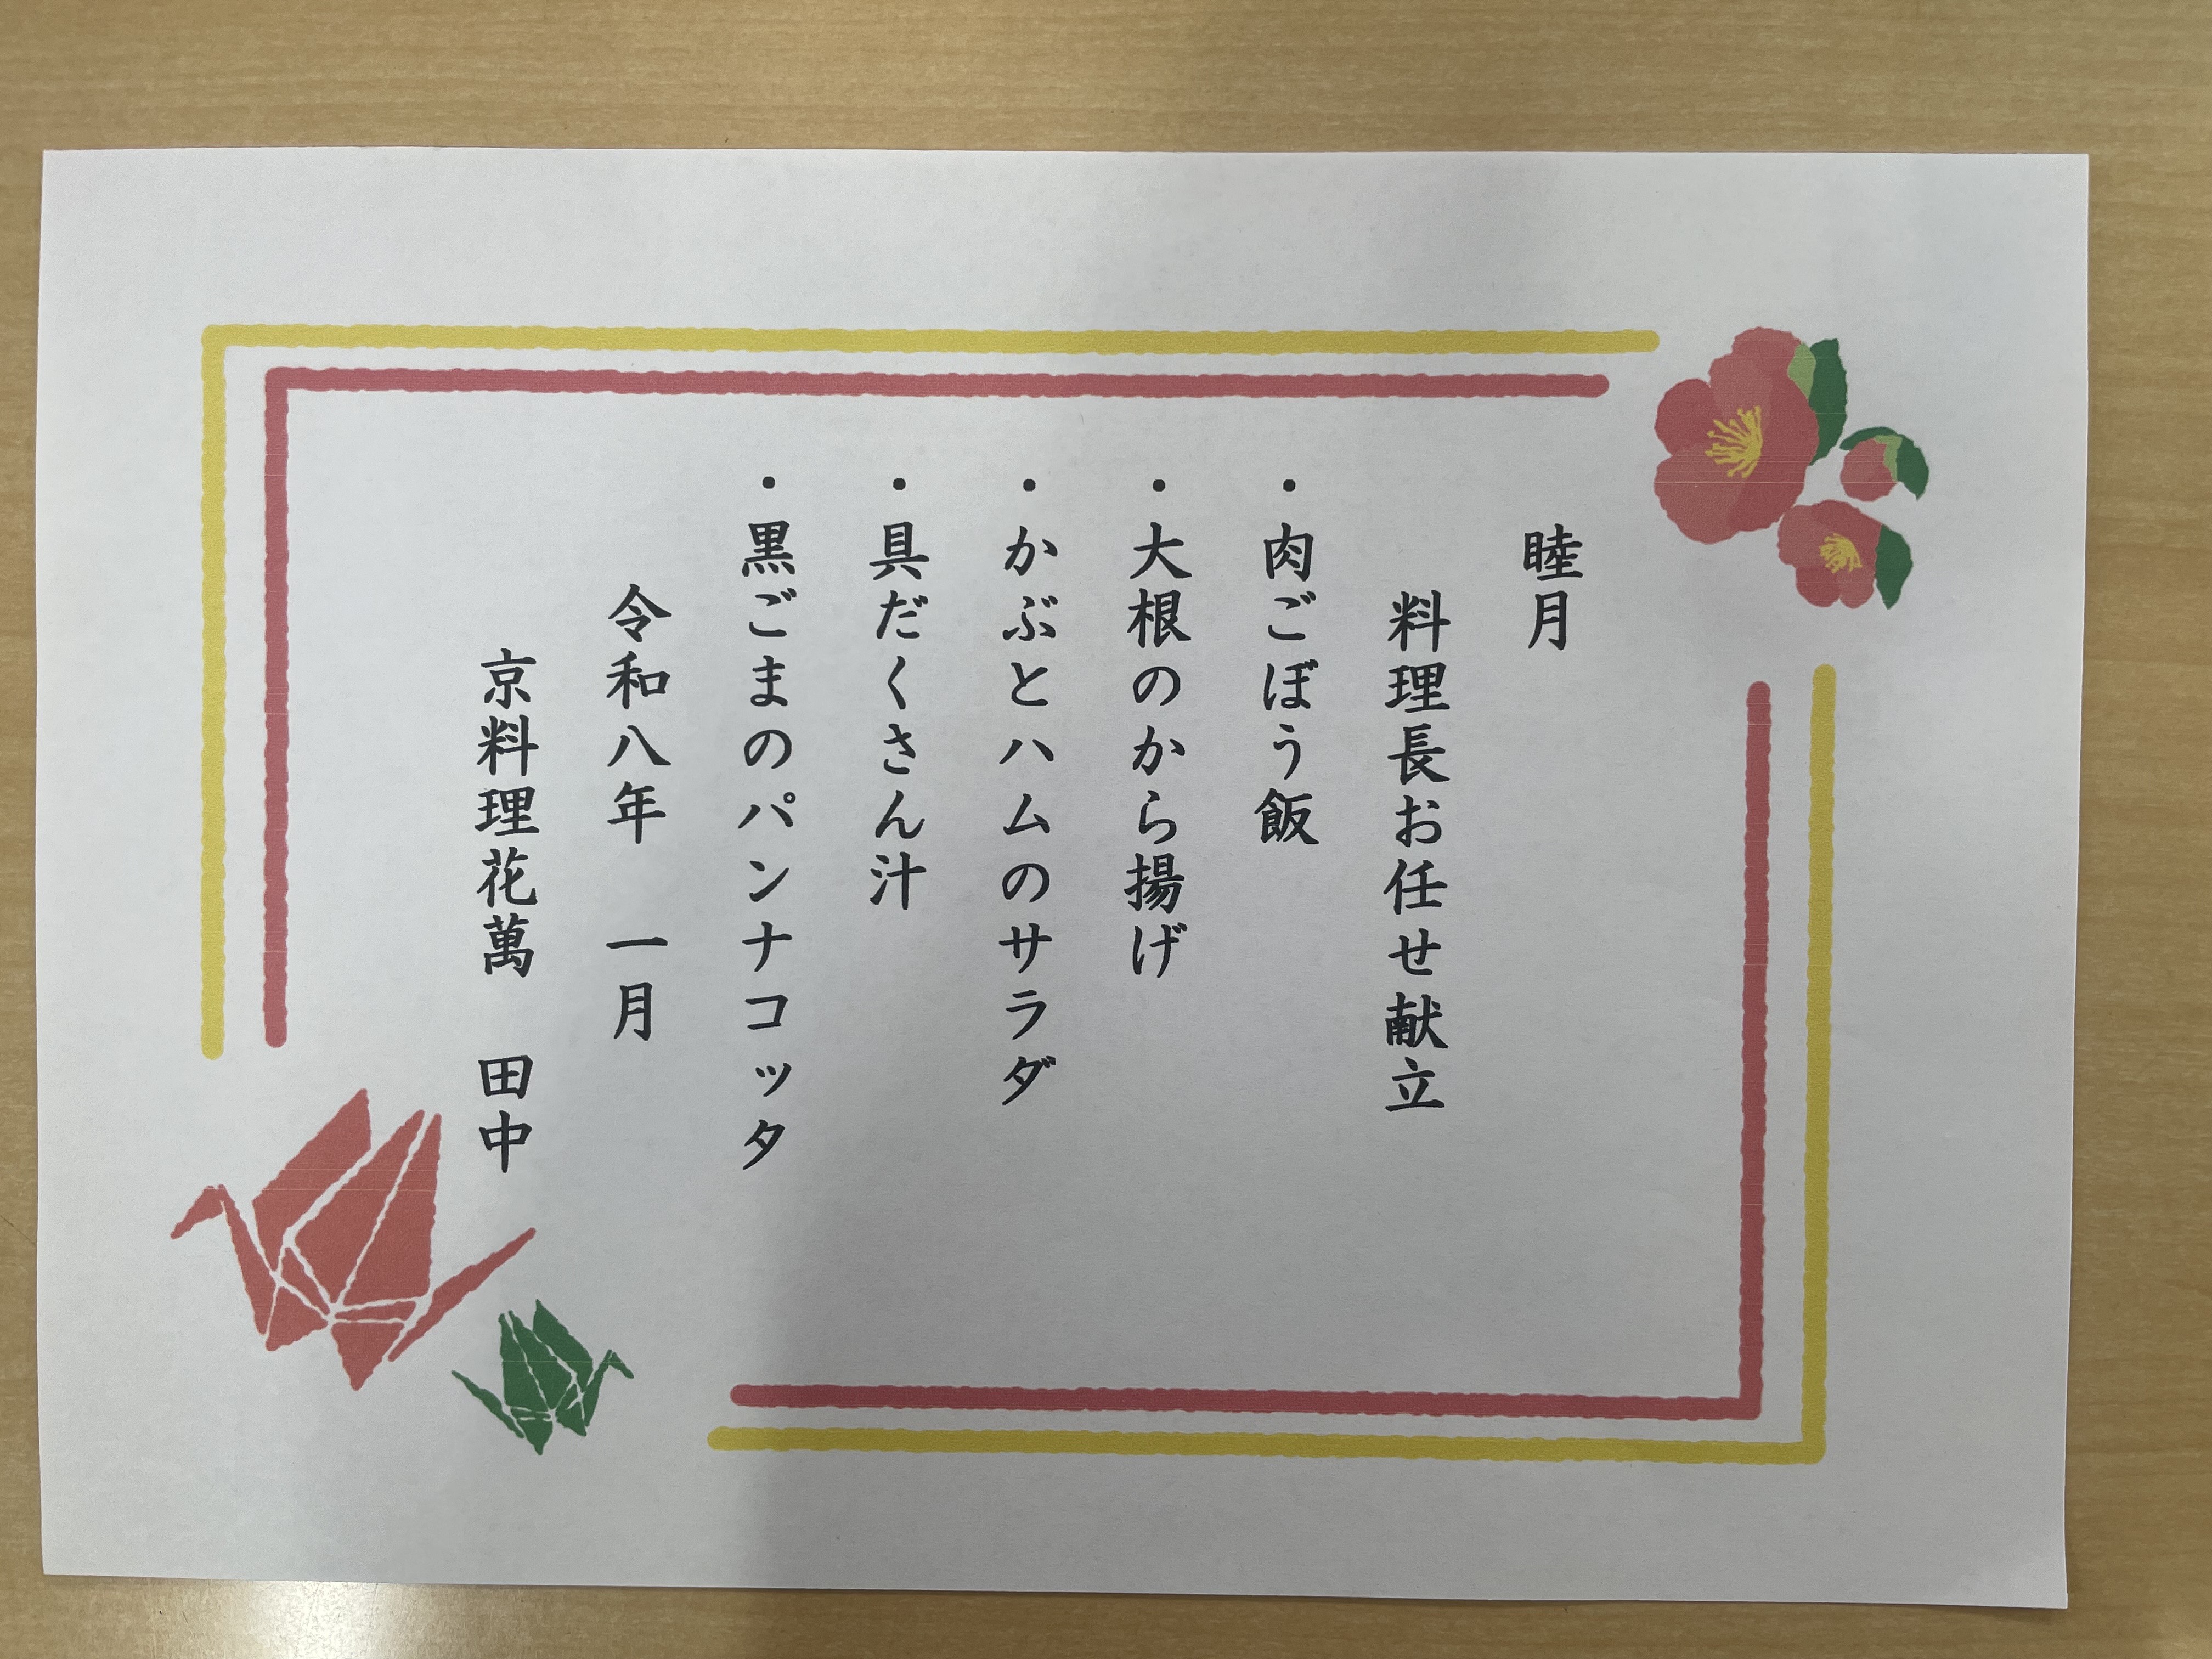 睦月
料理長お任せ献立
・肉ごぼう飯
・大根のから揚げ
・かぶとハムのサラダ
・具だくさん汁
・黒ごまのパンナコッタ
令和八年　一月
京料理花萬　田中